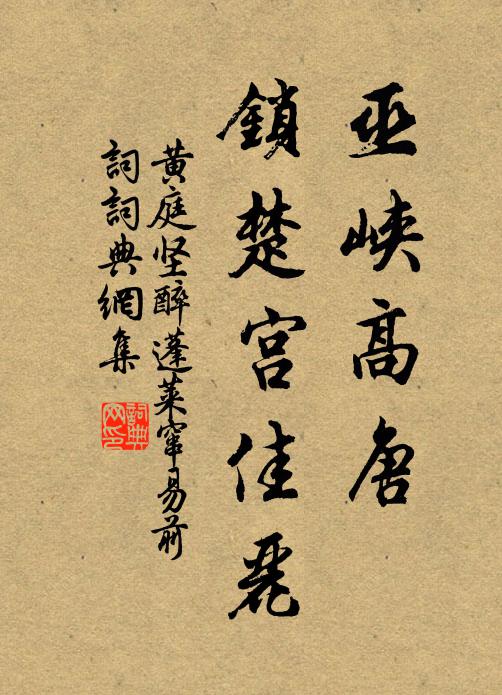 巫峽高唐
鎖楚宮佳麗
黃庭坚醉蓬萊窜易前
詞詞典網集
詞典网印